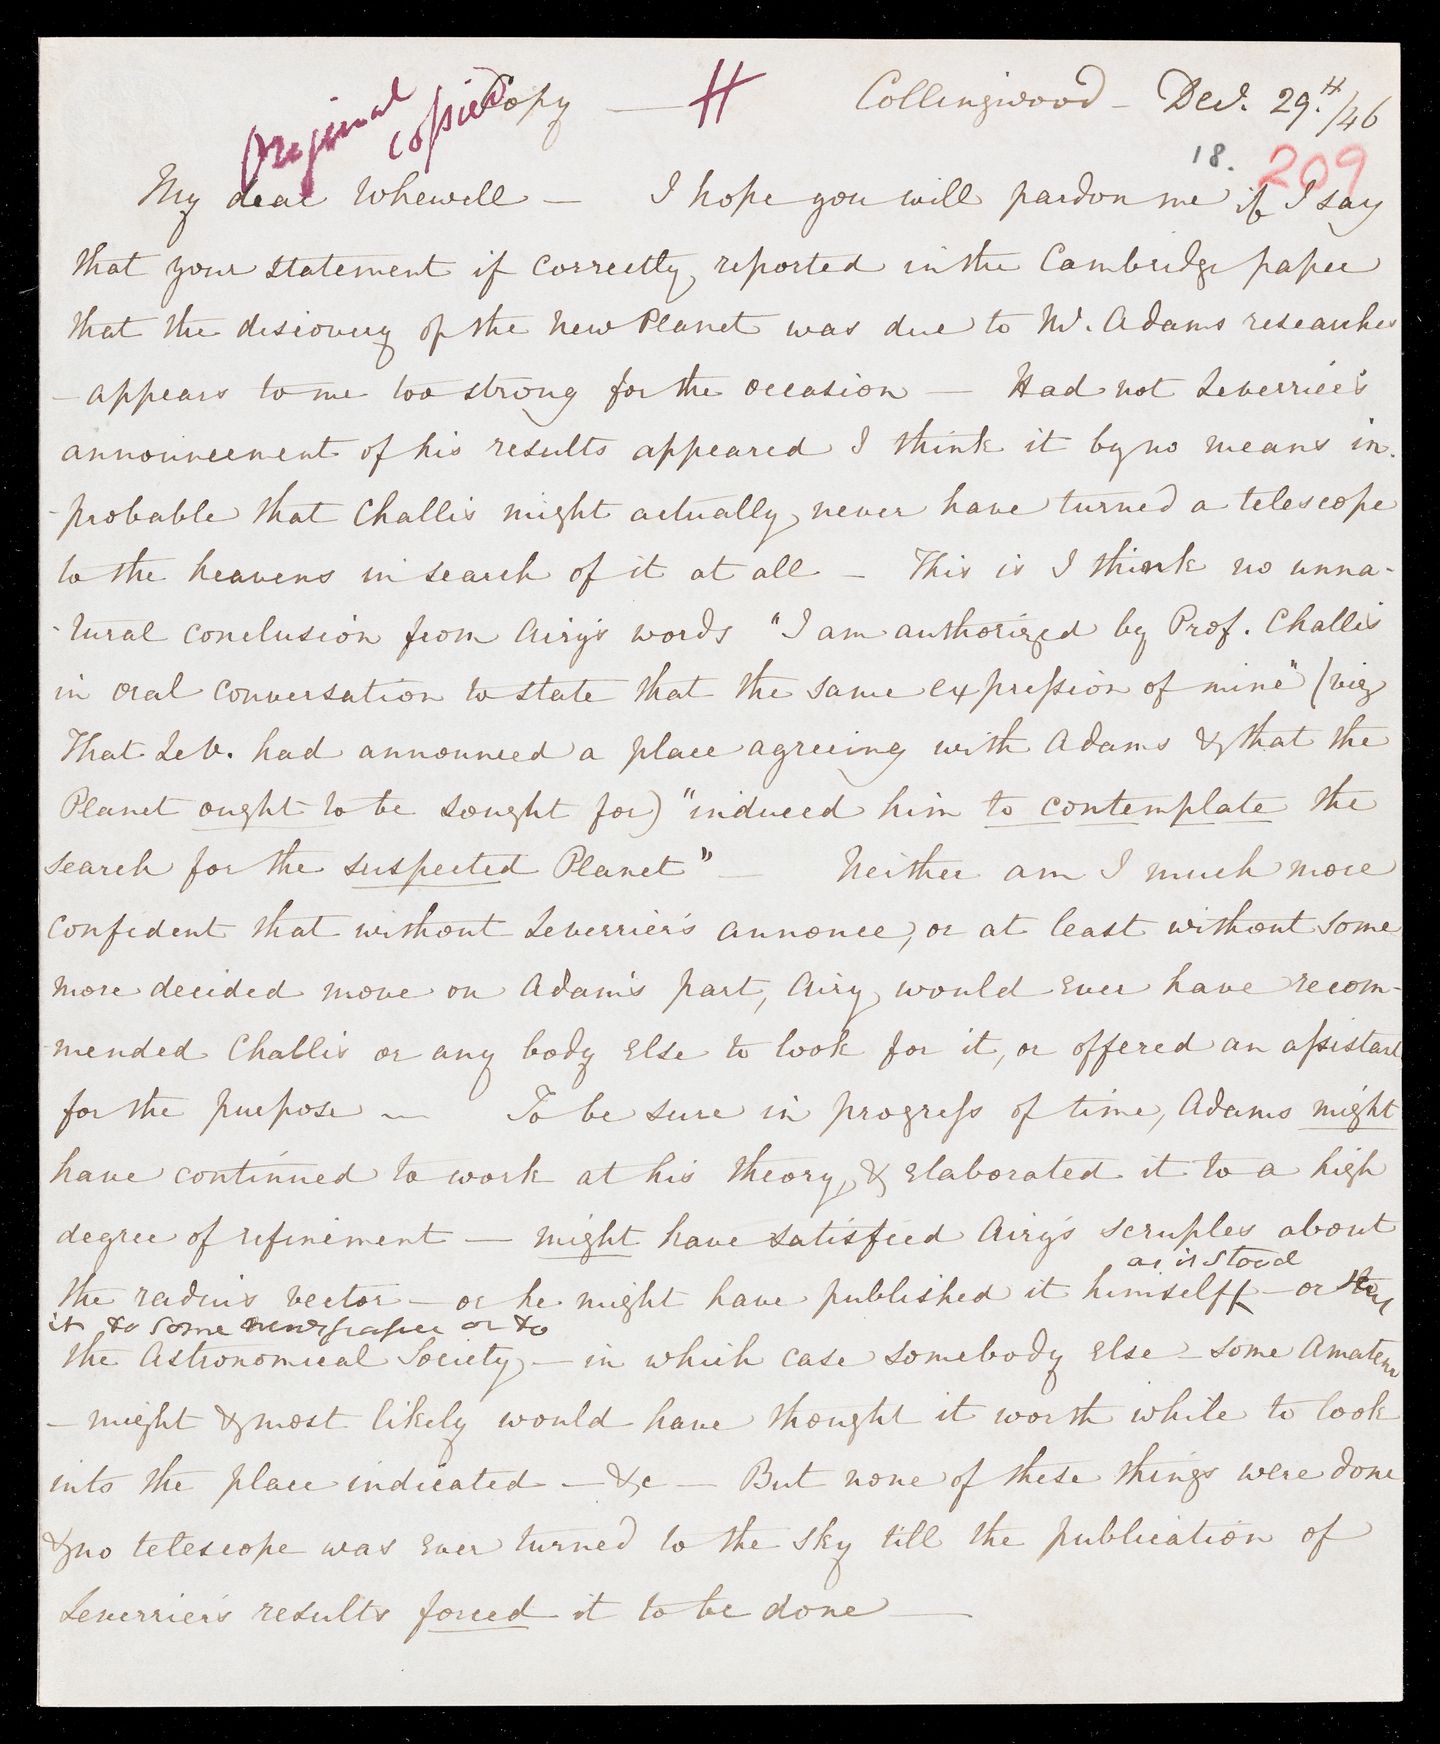 Original copied
Copy — H
Collingwood – Dec. 29.th/46
18. 209
My dear Whewell – I hope you will pardon me if I say
that your statement if correctly reported in the Cambridge paper
that the discovery of the new Planet was due to Mr. Adams researches
– appears to me too strong for the occasion – Had not Leverrier's
announcement of his results appeared I think it by no means im-
-probable that Challis might actually never have turned a telescope
to the heavens in search of it at all – This is I think no unna-
-tural conclusion from Airy's words "I am authorized by Prof. Challis
in oral conversation to state that the same expression of mine" (viz
That Lev. had announced a place agreeing with Adams & that the
Planet ought to be sought for) "induced him to contemplate the
search for the suspected Planet" – Neither am I much more
confident that without Leverrier's annonce, or at least without some
more decided move on Adam's part, Airy would ever have recom-
-mended Challis or any body else to look for it, or offered an assistant
for the purpose – To be sure in progress of time, Adams might
have continued to work at his theory, & elaborated it to a high
degree of refinement – might have satisfied Airy's scruples about
as it stood
the radius vector – or he might have published it himself – or
it to some newspaper or to
the Astronomical Society – in which case somebody else – some Amateur
– might & most likely would have thought it worth while to look
into the place indicated – &c – But none of these things were done
& no telescope was ever turned to the sky till the publication of
Leverrier's results forced it to be done –